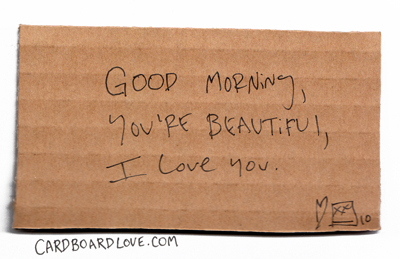 GOOD MORNING,
YOU'RE BEAUTIFUL,
I LOVE YOU.
10
CARDBOARDLOVE.COM